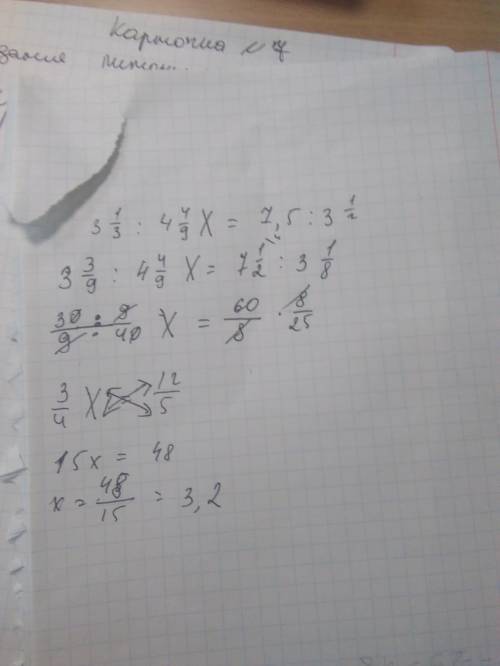 Карточка №7
3 1/3 : 4 4/9 X = 7,5 : 3 1/2
3 3/9 : 4 4/9 X = 7 1/2 : 3 1/8
30/9 : 9/40 X = 60/8 · 8/25
3/4 X = 12/5
15x = 48
x = 48/15 = 3,2